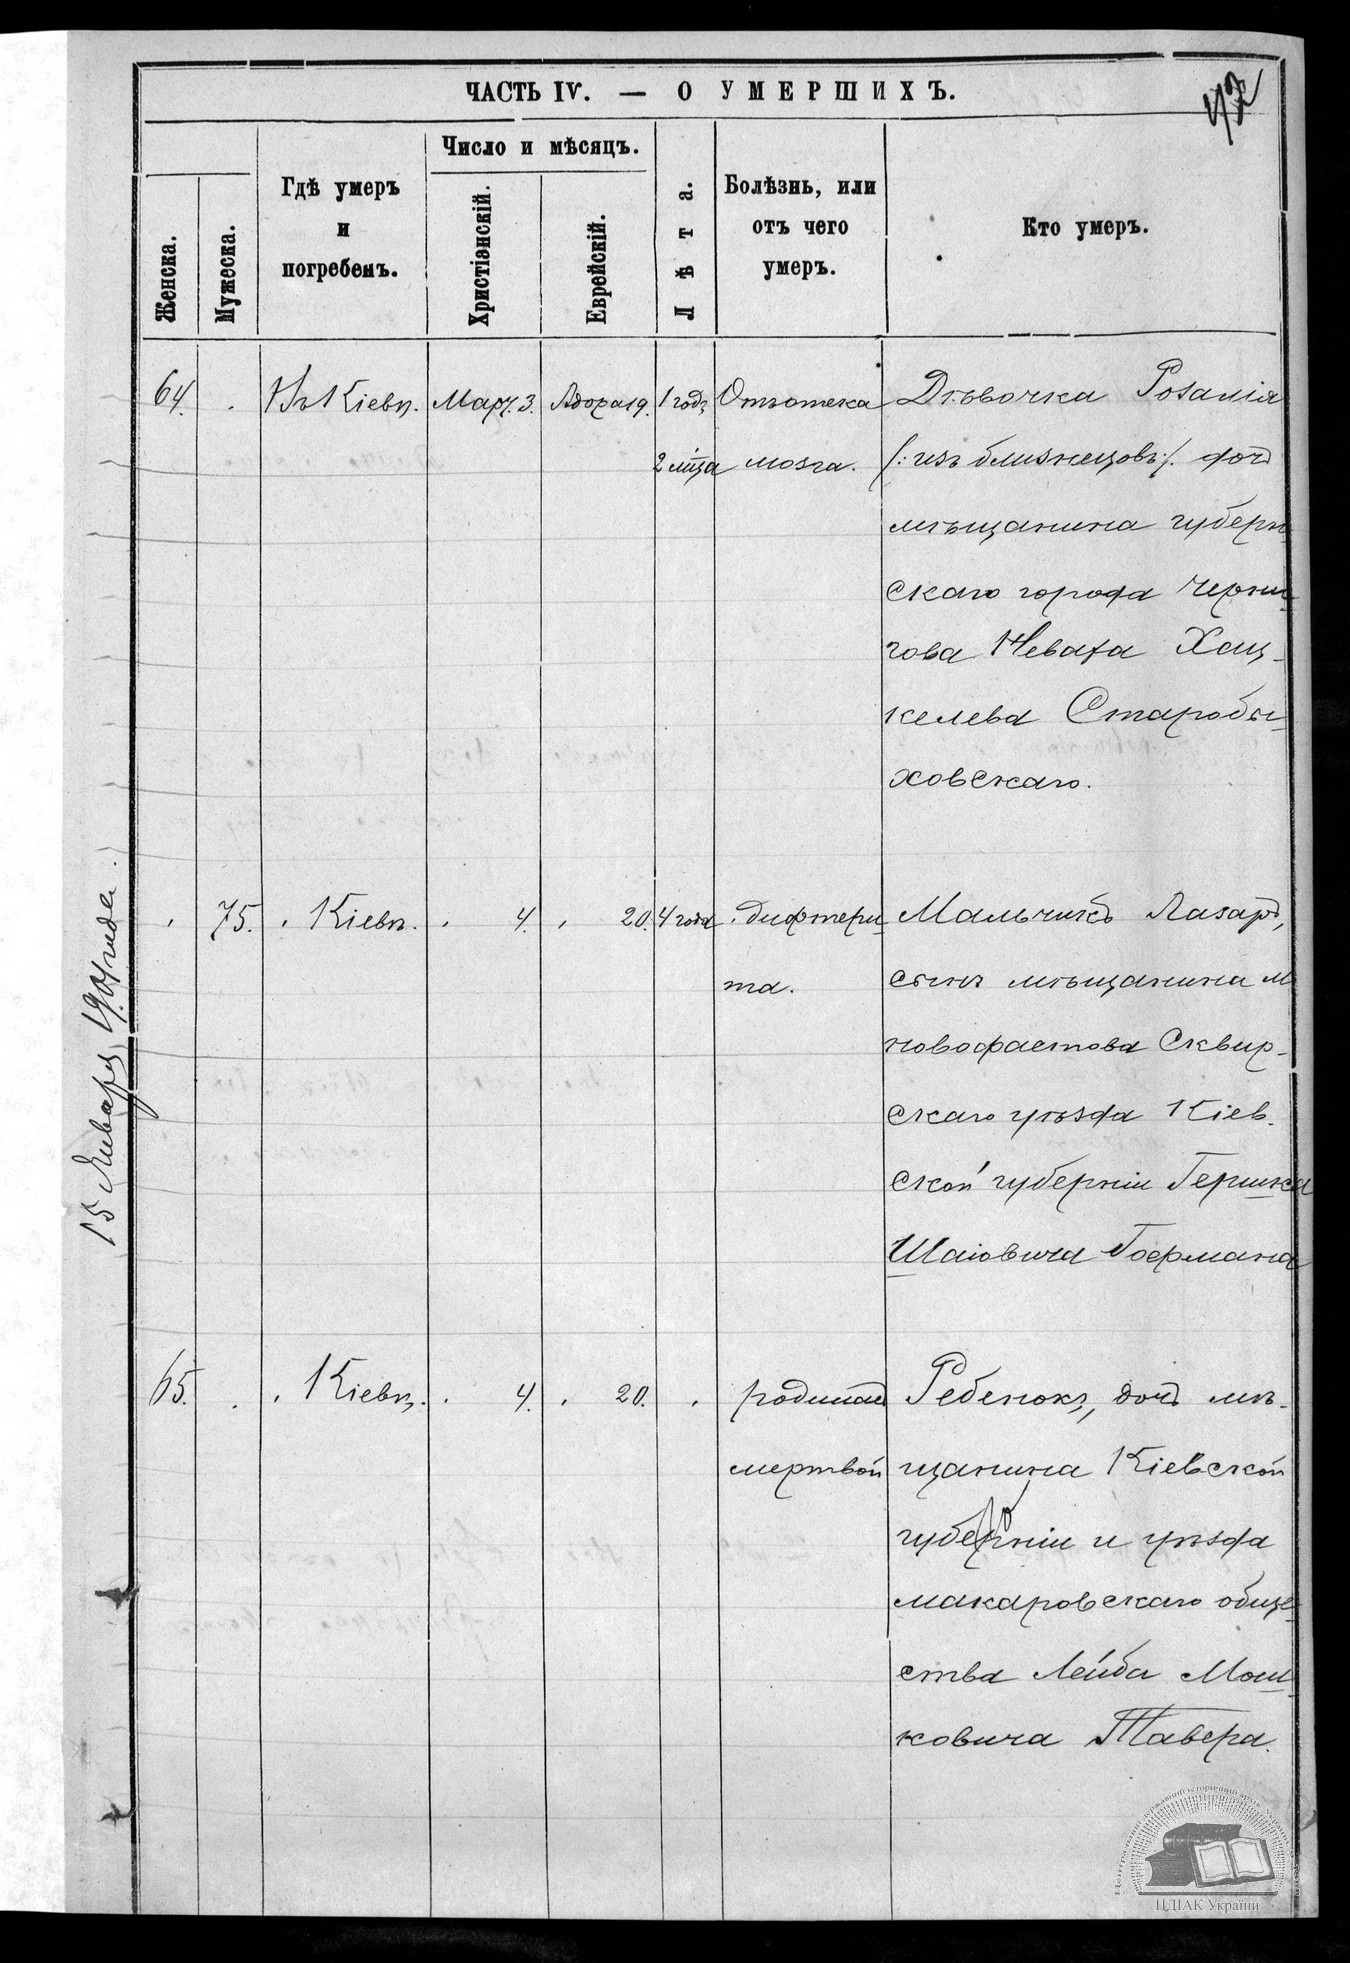 ЧАСТЬ IV. — О УМЕРШИХЪ.
47
Женска.
Мужеска.
Гдѣ умеръ
и
погребенъ.
Число и мѣсяцъ.
Христіанскій.
Еврейскій.
Лѣта.
Болѣзнь, или
отъ чего
умеръ.
Кто умеръ.
64. Въ Кіевѣ. Март. 3. Адора 19. 1 годъ Отъ отека Дѣвочка Розалія
2 мѣца мозга. /:изъ близнецовъ:/. дочь
мѣщанина губерн-
скаго города Черни-
гова Неваха Хац-
келева Старобы-
ховскаго.
75. Кіевѣ. 4. 20. 4 года дифтери- Мальчикъ Лазарь,
та. сынъ мѣщанина м
новофастова Сквир-
скаго уѣзда Кіев-
ской губерніи Гершка
Шаіовича Гофмана
65. Кіевѣ. 4. 20. родилась Ребенокъ, дочь мѣ-
мертвой щанина Кіевской
губерніи и уѣзда
макаровскаго обще-
ства Лейба Мош-
ковича Тавера.
15 Январ 1904 года.
Центральний державний історичний архів України
ЦДІАК України